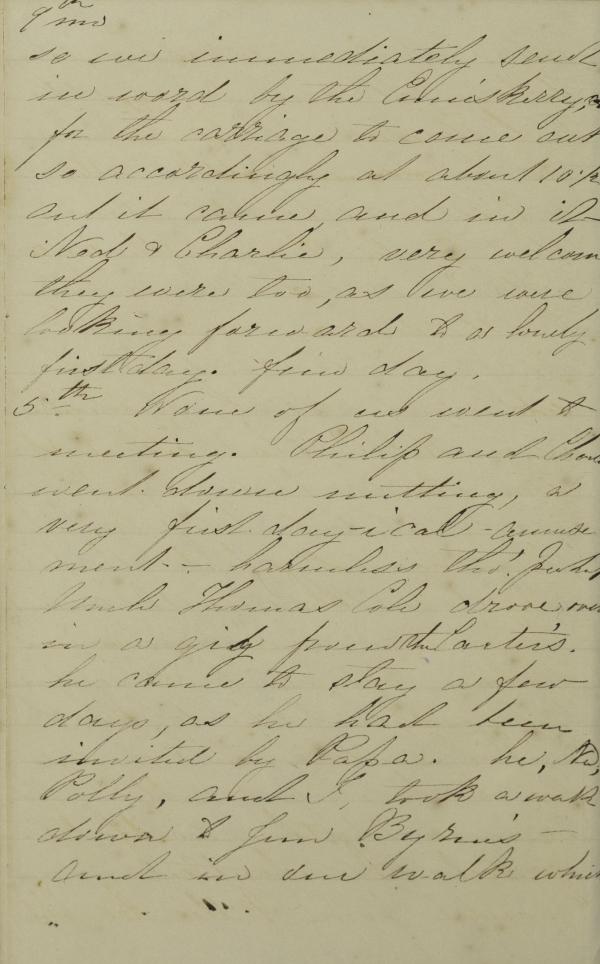 9th mo
so we immediately sent
in word by the Enniskerry,
for the carriage to come out
so accordingly at about 10 1/2
out it came, and in it
Ned & Charlie, very welcom
they were too, as we were
looking forward to a lonely
first day. fine day.
5th None of us went to
meeting. Philip and Charl
went down nutting, a
very first-day-ical - amuse
ment - harmless tho'.
Uncle Thomas Cole drove over
in a gig from the Carter's.
he came to stay a few
days, as he had been
invited by Papa. he, Ned,
Polly, and I, took a walk
down to Jim Byrne's -
and in our walk which